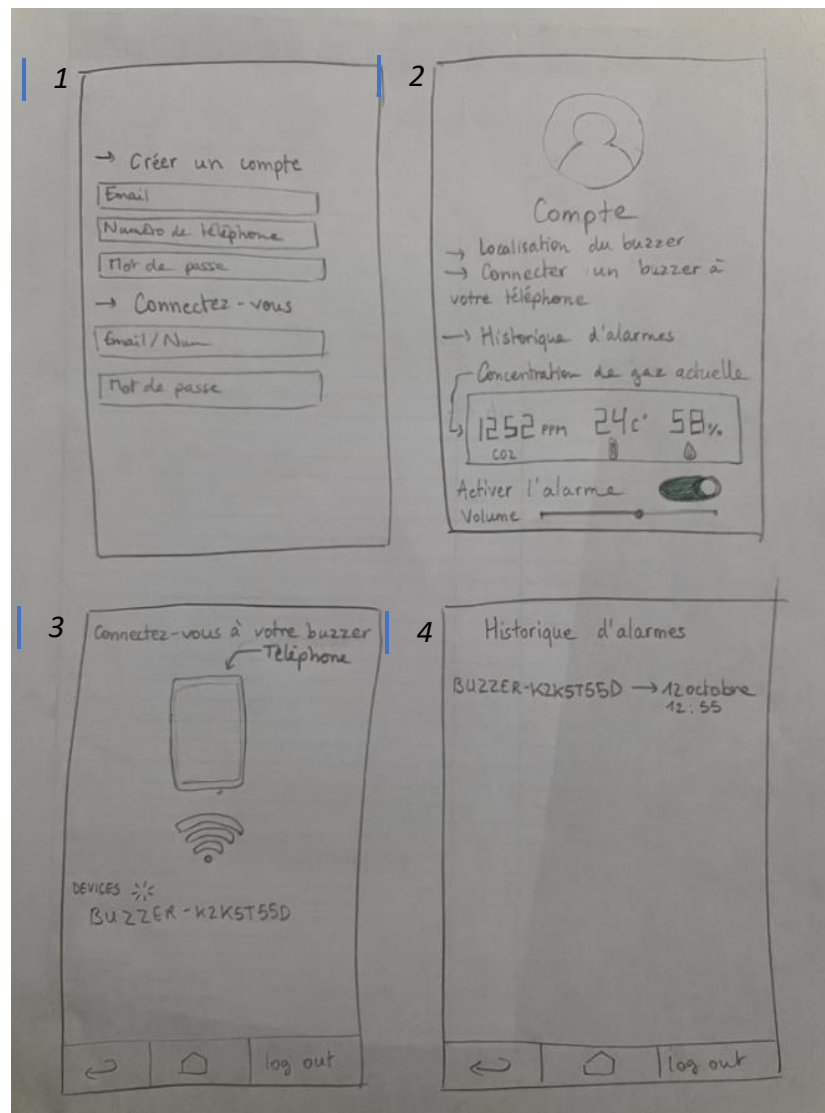 1
→ Créer un compte
Email
Numéro de téléphone
Mot de passe
→ Connectez-vous
Email/Num
Mot de passe
2
Compte
→ Localisation du buzzer
→ Connecter un buzzer à
votre téléphone
→ Historique d'alarmes
Concentration de gaz actuelle
1252 PPM 24c° 58%
CO2
Activer l'alarme
Volume
3
Connectez-vous à votre buzzer
Téléphone
DEVICES
BUZZER-K2K5T55D
log out
4
Historique d'alarmes
BUZZER-K2K5T55D → 12 octobre
12:55
log out